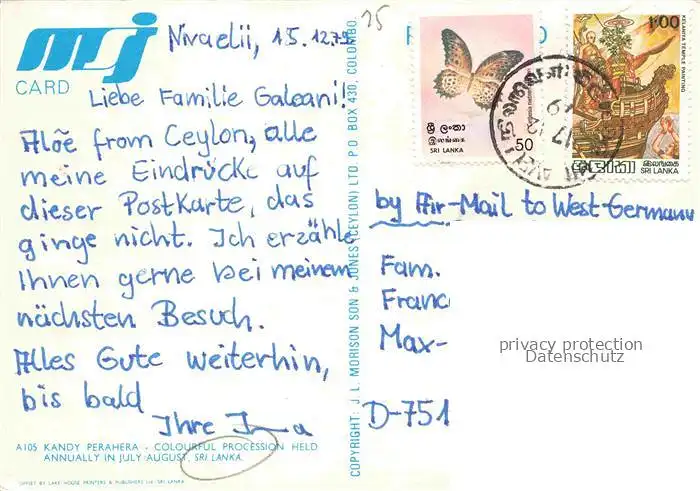 msj
CARD
Nivaelii, 15.12.79
25
Liebe Familie Galeani!
Aloe from Ceylon, alle
meine Eindrücke auf
dieser Postkarte, das
ginge nicht. Ich erzähle
Ihnen gerne bei meinem
nächsten Besuch.
Alles Gute weiterhin,
bis bald
Ihre
A105 KANDY PERAHERA - COLOURFUL PROCESSION HELD
ANNUALLY IN JULY AUGUST, SRI LANKA.
OFFSET BY LAKE HOUSE PRINTERS & PUBLISHERS Ltd. SRI LANKA
COPYRIGHT: J. L. MORISON SON & JONES (CEYLON) LTD. P.O. BOX 430, COLOMBO.
ශ්‍රී ලංකා
இலங்கை
SRI LANKA
50
1.00
KELANIYA TEMPLE PAINTING
ශ්‍රී ලංකා
இலங்கை
SRI LANKA
by Air-Mail to West-Germany
Fam.
Franc
Max-
D-751
privacy protection
Datenschutz